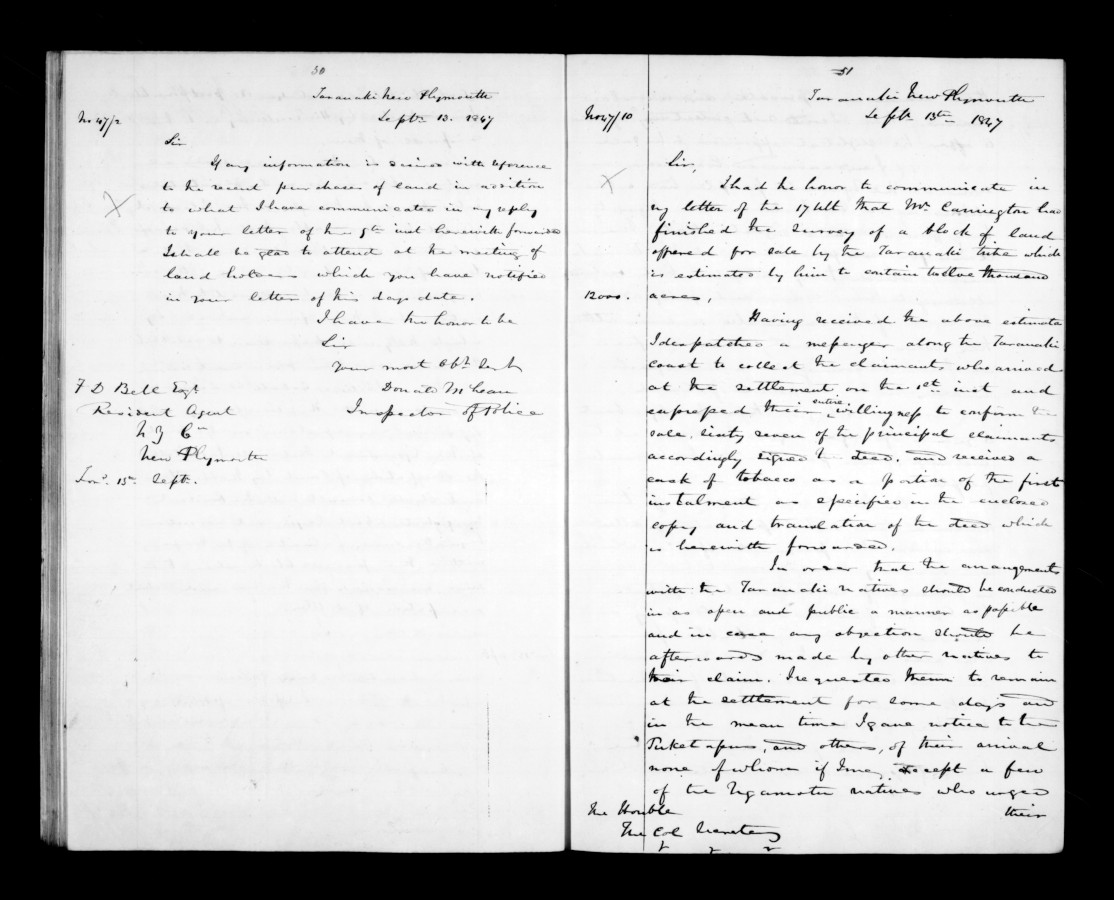 50
Taranaki New Plymouth
No 47/2
Septr 13. 1847
Sir
If any information is desired with reference
to the recent purchases of land in addition
to what I have communicated in my reply
to your letter of the 9th inst herewith forwarded
I shall be glad to attend at the meeting of
land holders which you have notified
in your letter of this days date.
I have the honor to be
Sir
Your most obt Servt
Donald McLean
Inspector of Police
F D Bell Esqr
Resident Agent
N Z Co
New Plymouth
13th Septr.
51
Taranaki New Plymouth
No 47/10
Septr 13th 1847
Sir,
I had the honor to communicate in
my letter of the 17 Ult that Mr Carrington had
finished the survey of a block of land
offered for sale by the Taranaki tribe which
is estimated by him to contain twelve thousand
12000. acres,
Having received the above estimate
I despatched a messenger along the Taranaki
coast to collect the claimants who arrived
at the settlement on the 1st inst and
expressed their entire willingness to confirm the
sale, sixty seven of the principal claimants
accordingly signed the deed, and received a
cask of tobacco as a portion of the first
instalment as specified in the enclosed
copy and translation of the deed which
is herewith forwarded.
In order that the arrangements
with the Taranaki natives should be conducted
in as open and public a manner as possible
and in case any objection should be
afterwards made by other natives to
their claim. I requested them to remain
at the settlement for some days and
in the mean time I gave notice to the
Puketapus, and others, of their arrival
none of whom if I may except a few
of the Ngamotu natives who urged
their
The Honble
The Col Secretary